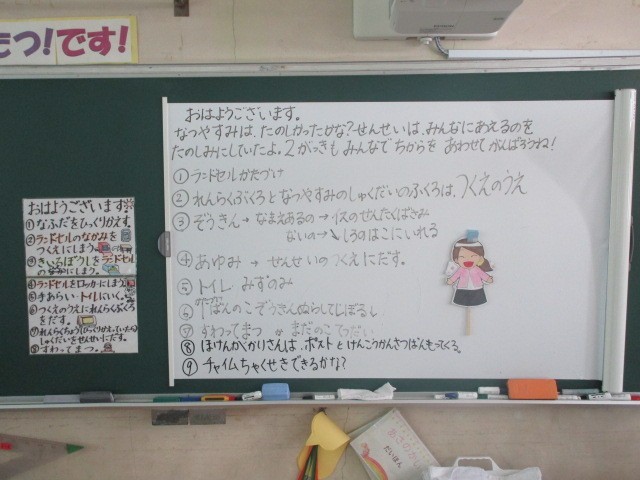 たつ!です!
おはようございます。
なつやすみは、たのしかったかな?せんせいは、みんなにあえるのを
たのしみにしていたよ。2がっきもみんなでちからをあわせてがんばろうね!
①ランドセルかたづけ
②れんらくぶくろとなつやすみのしゅくだいのふくろは、つくえのうえ
③ぞうきん→なまえあるの→イスのせんたくばさみ
ないの→うしろのはこにいれる
④あゆみ→せんせいのつくえにだす。
⑤トイレ・みずのみ
⑥げたばこのぞうきんぬらしてしぼる
⑦すわってまつ
⑧ほけんかかりさんは、ポストとけんこうかんさつばんもってくる。
⑨チャイムちゃくせきできるかな?
おはようございます
①なふだをひっくりかえす。
②ランドセルのなかみを
つくえにしまう。
③きいろぼうしをランドセル
のなかにしまう。
④ランドセルをロッカーにしまう。
⑤てあらい・トイレにいく。
⑥つくえのうえにれんらくぶくろ
をだす。
⑦れんらくちょう(ひっくりかえしていたら)
しゅくだいをせんせいにだす。
⑧すわってまつ。
だいほん